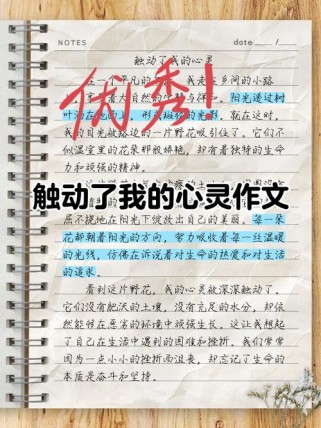 NOTES
date
触动了我的心灵
在一个平凡的 我走在乡间的小路
着大自然的 与 和 阳光透过树
叶洒在 上 形成斑驳的光影 就在这时，
我的目光被路边的一片野花吸引住了。它们不
似温室里的花朵那般娇艳，却有着独特的生命
力和顽强的精神。
优秀！
触动了我的心灵作文
屈不挠地在阳光下绽放出自己的美丽。每一朵
花都朝着阳光的方向，努力吸收着每一丝温暖
的光线，仿佛在诉说着对生命的热爱和对生活
的追求。
看到这片野花，我的心灵被深深触动了。
它们没有肥沃的土壤，没有充足的水分，却依
然能够在恶劣的环境中顽强生长。这让我想起
了自己在生活中遇到的困难和挫折。我们常常
因为一点小小的挫折而沮丧，却忘记了生命的
本质是奋斗和坚持。